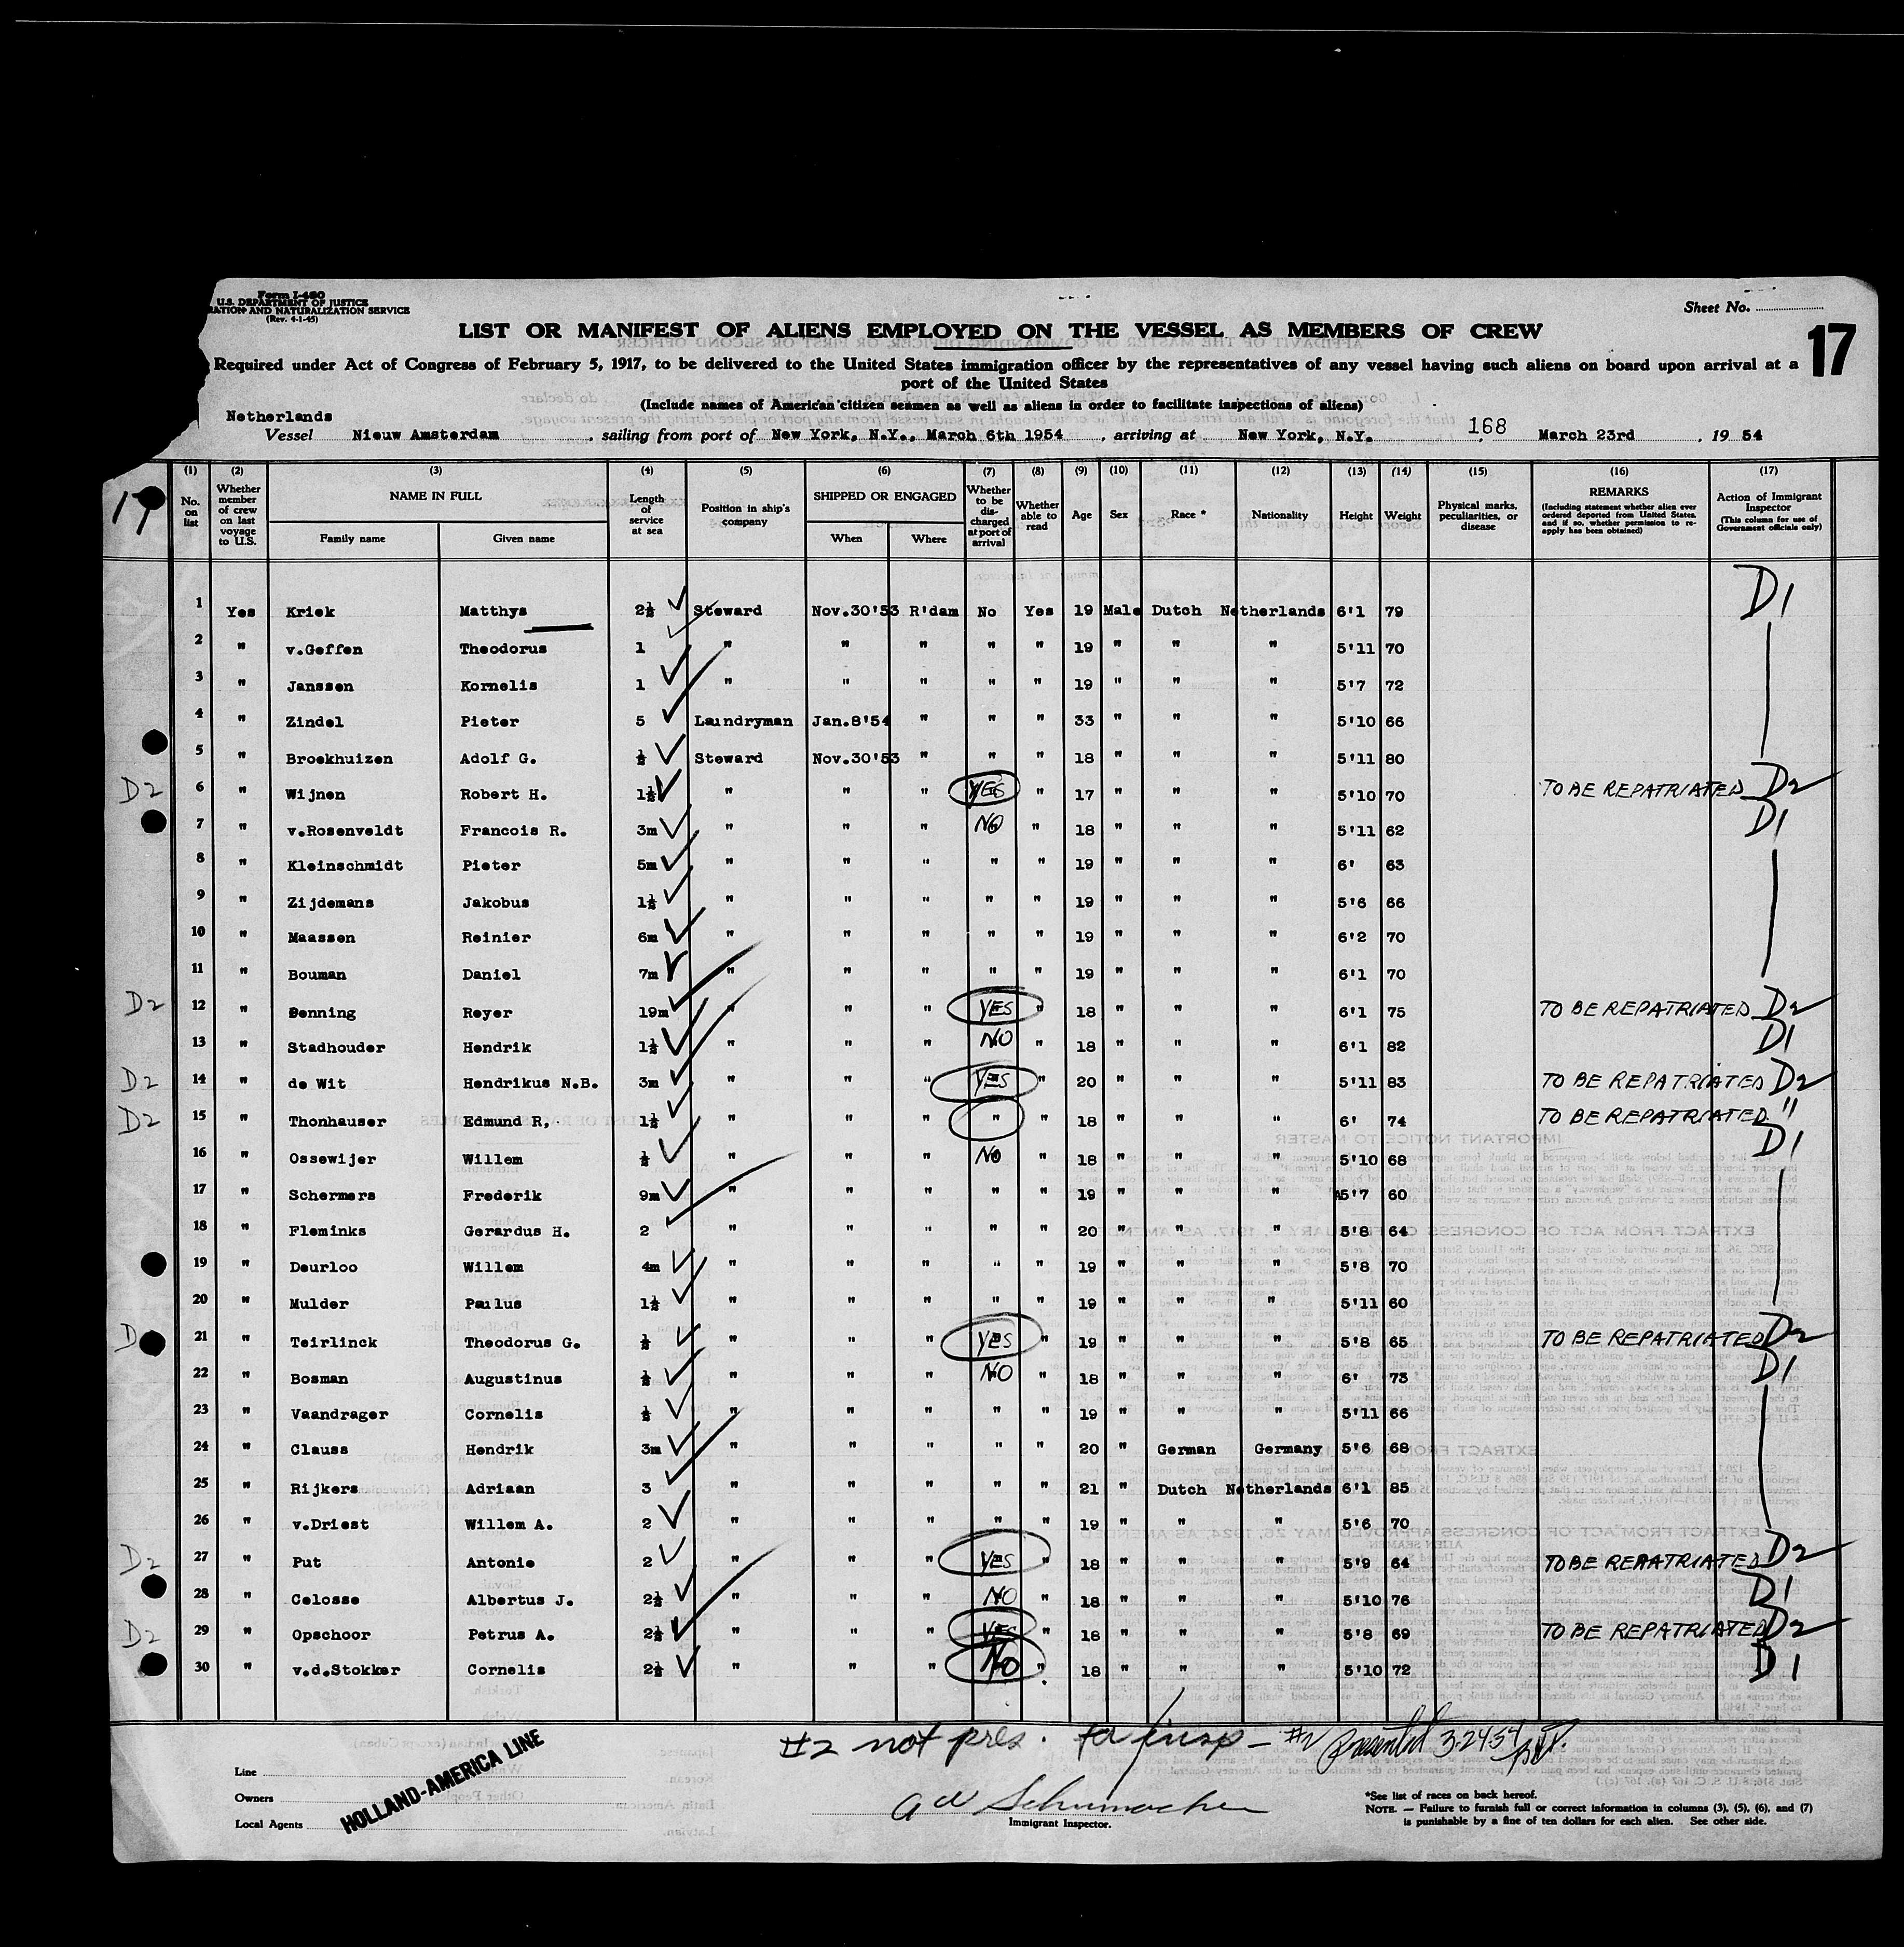 Form I-480
U.S. DEPARTMENT OF JUSTICE
RATION AND NATURALIZATION SERVICE
(Rev. 4-1-45)
Sheet No.
LIST OR MANIFEST OF ALIENS EMPLOYED ON THE VESSEL AS MEMBERS OF CREW
17
Required under Act of Congress of February 5, 1917, to be delivered to the United States immigration officer by the representatives of any vessel having such aliens on board upon arrival at a
port of the United States
(Include names of American citizen seamen as well as aliens in order to facilitate inspections of aliens)
Netherlands
Vessel Nieuw Amsterdam , sailing from port of New York, N.Y., March 6th 1954 , arriving at New York, N.Y. 168 March 23rd , 19 54
17
(1) (2) (3) (4) (5) (6) (7) (8) (9) (10) (11) (12) (13) (14) (15) (16) (17)
No. on list Whether member of crew on last voyage to U.S. NAME IN FULL Family name Given name Length of service at sea Position in ship's company SHIPPED OR ENGAGED When Where Whether to be discharged at port of arrival Whether able to read Age Sex Race * Nationality Height Weight Physical marks, peculiarities, or disease REMARKS (Including statement whether alien ever ordered deported from United States, and if so, whether permission to re-apply has been obtained) Action of Immigrant Inspector (This column for use of Government officials only)
1 Yes Kriek Matthys 2½ Steward Nov.30'53 R'dam No Yes 19 Male Dutch Netherlands 6'1 79 D1
2 " v.Geffen Theodorus 1 " " " " " 19 " " " 5'11 70
3 " Janssen Kornelis 1 " " " " " 19 " " " 5'7 72
4 " Zindel Pieter 5 Laundryman Jan.8'54 " " " 33 " " " 5'10 66
5 " Broekhuizen Adolf G. ½ Steward Nov.30'53 " " " 18 " " " 5'11 80
D2 6 " Wijnen Robert H. 1½ " " " YES " 17 " " " 5'10 70 TO BE REPATRIATED D2
7 " v.Rosenveldt Francois R. 3m " " " NO " 18 " " " 5'11 62 D1
8 " Kleinschmidt Pieter 5m " " " " " 19 " " " 6' 63
9 " Zijdemans Jakobus 1½ " " " " " 19 " " " 5'6 66
10 " Maassen Reinier 6m " " " " " 19 " " " 6'2 70
11 " Bouman Daniel 7m " " " " " 19 " " " 6'1 70
D2 12 " Benning Reyer 19m " " " YES " 18 " " " 6'1 75 TO BE REPATRIATED D2
13 " Stadhouder Hendrik 1½ " " " NO " 18 " " " 6'1 82 D1
D2 14 " de Wit Hendrikus N.B. 3m " " " YES " 20 " " " 5'11 83 TO BE REPATRIATED D2
D2 15 " Thonhauser Edmund R, 1½ " " " " " 18 " " " 6' 74 TO BE REPATRIATED "
16 " Ossewijer Willem ½ " " " NO " 18 " " " 5'10 68 D1
17 " Schermers Frederik 9m " " " " " 19 " " " 5'7 60
18 " Fleminks Gerardus H. 2 " " " " " 20 " " " 5'8 64
19 " Deurloo Willem 4m " " " " " 19 " " " 5'8 70
20 " Mulder Paulus 1½ " " " " " 19 " " " 5'11 60
D 21 " Teirlinck Theodorus G. ½ " " " YES " 19 " " " 5'8 65 TO BE REPATRIATED D2
22 " Bosman Augustinus ½ " " " NO " 18 " " " 6' 73 D1
23 " Vaandrager Cornelis ½ " " " " " 19 " " " 5'11 66
24 " Clauss Hendrik 3m " " " " " 20 " German Germany 5'6 68
25 " Rijkers Adriaan 3 " " " " " 21 " Dutch Netherlands 6'1 85
26 " v.Driest Willem A. 2 " " " " " 19 " " " 5'6 70
D2 27 " Put Antonie 2 " " " YES " 18 " " " 5'9 64 TO BE REPATRIATED D2
28 " Celosse Albertus J. 2½ " " " NO " 18 " " " 5'10 76 D1
D2 29 " Opschoor Petrus A. 2½ " " " YES " 18 " " " 5'8 69 TO BE REPATRIATED D2
30 " v.d.Stokker Cornelis 2½ " " " NO " 18 " " " 5'10 72 D1
#2 not pres. for insp - #2 Presented 3-24-54
Line
Owners
Local Agents
HOLLAND-AMERICA LINE
Schumacher
Immigrant Inspector.
*See list of races on back hereof.
NOTE. — Failure to furnish full or correct information in columns (3), (5), (6), and (7)
is punishable by a fine of ten dollars for each alien. See other side.